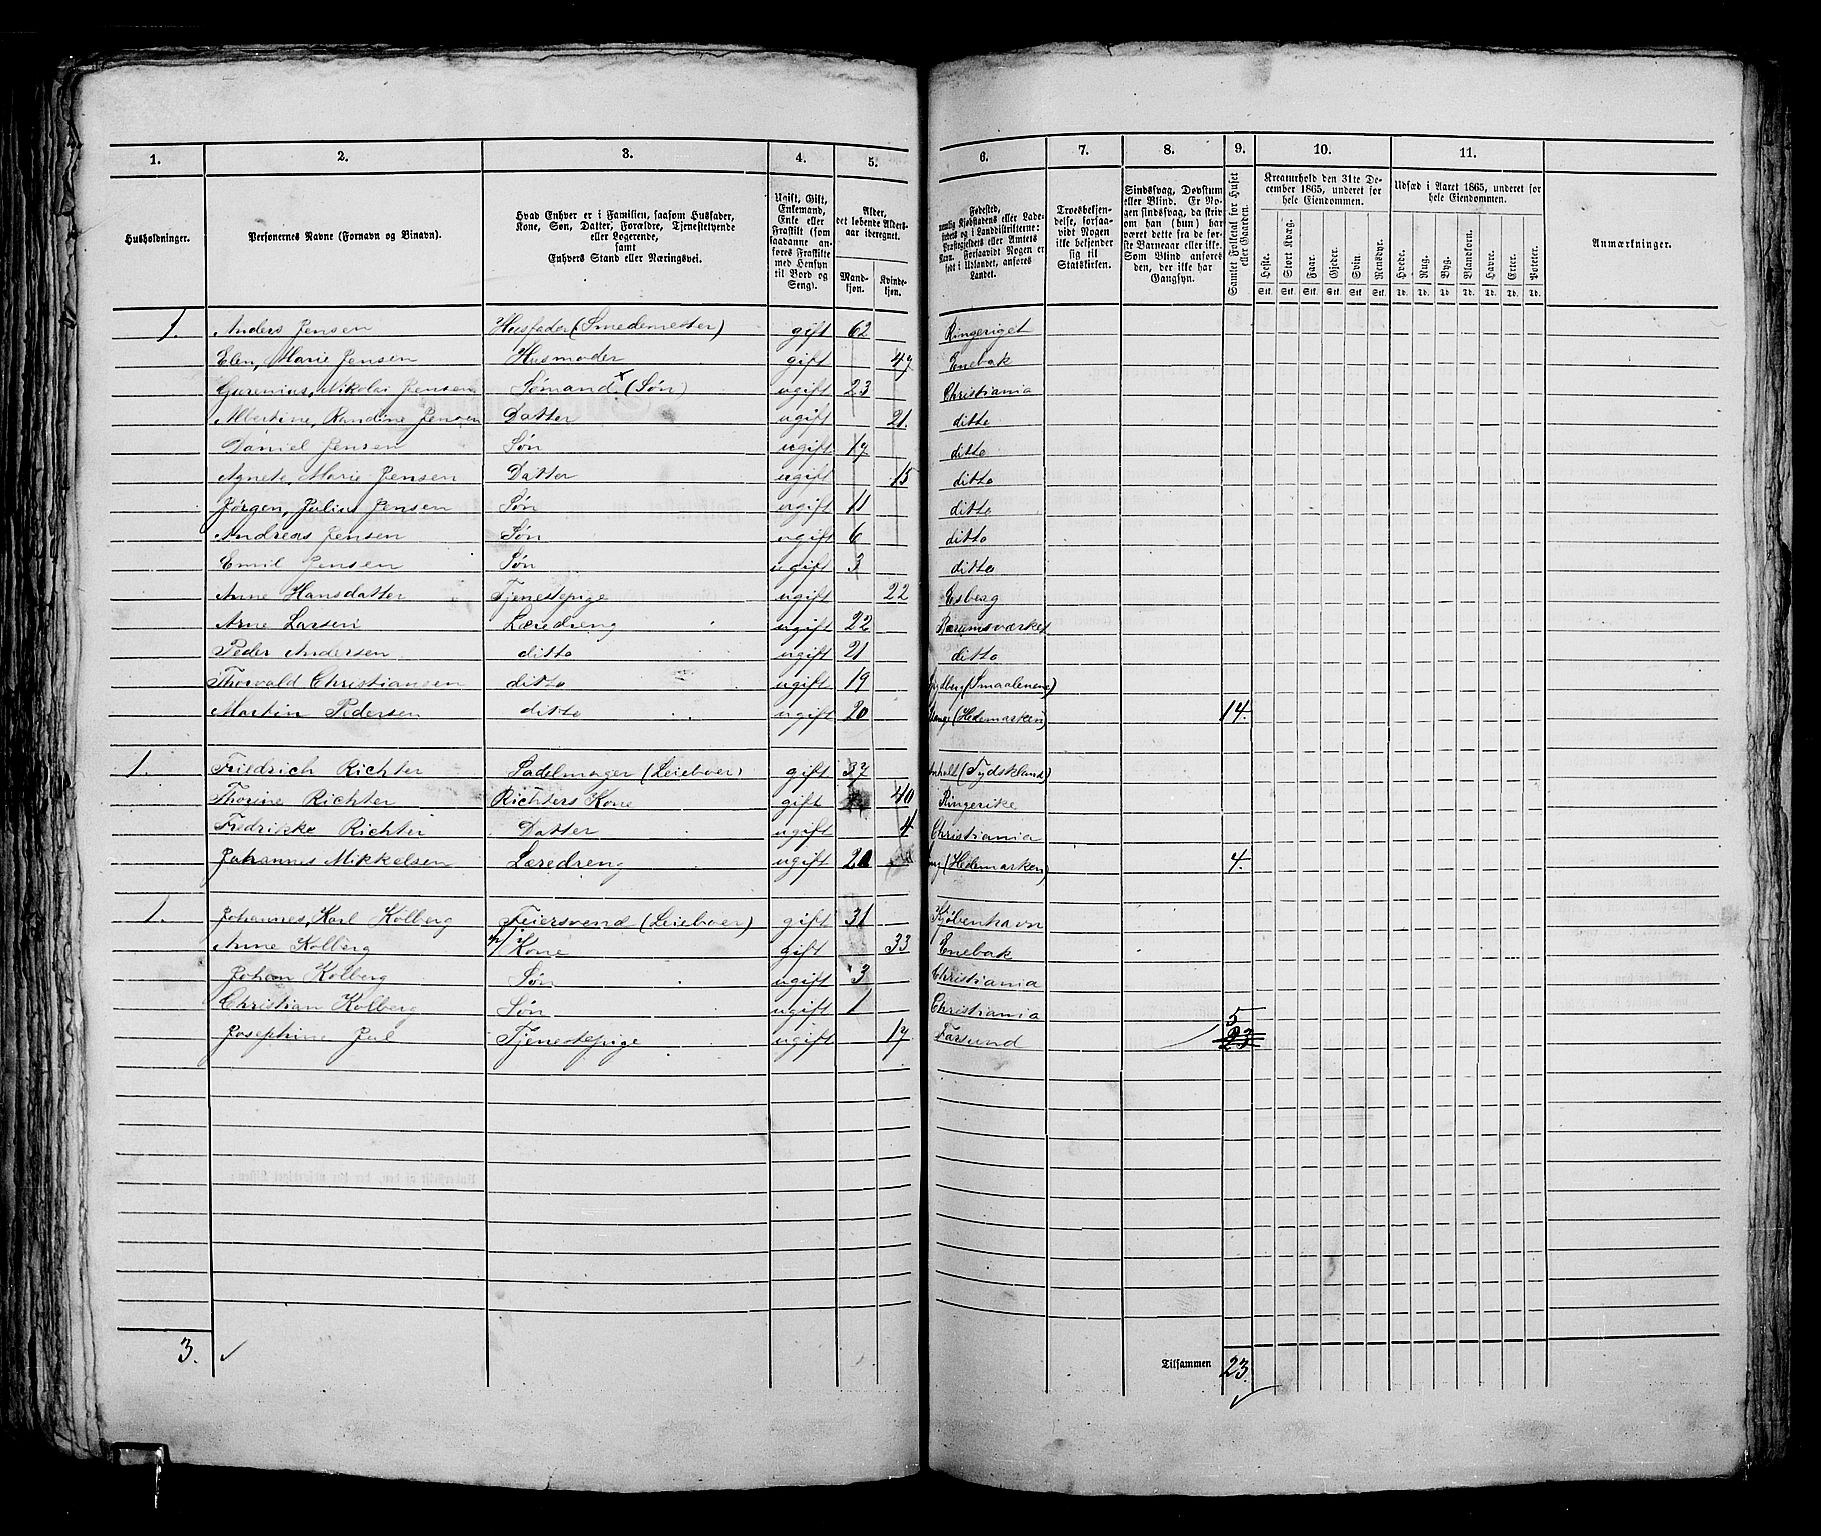 1. 2. 3. 4. 5. 6. 7. 8. 9. 10. 11.
Husholdninger.
Personernes Navne (Fornavn og Binavn).
Hvad Enhver er i Familien, saasom Husfader,
Kone, Søn, Datter, Forældre, Tjenestetyende
eller Logerende,
samt
Enhvers Stand eller Næringsvei.
Ugift, Gift,
Enkemand,
Enke eller
Fraskilt (som
saadanne an-
føres Fraskilte
med Hensyn
til Bord og
Seng).
Alder,
det løbende Alders-
aar iberegnet.
Mand-
kjøn.
Kvinde-
kjøn.
Fødested,
nemlig Kjøbstadens eller Lade-
stedets og i Landdistrikterne:
Præstegjeldets eller Amtets
Navn. Forsaavidt Nogen er
født i Udlandet, anføres
Landet.
Troesbekjen-
delse, forsaa-
vidt Nogen
ikke bekjender
sig til
Statskirken.
Sindssvag, Døvstum
eller Blind. Er No-
gen sindssvag, da skriv
om han (hun) har
været dette fra de før-
ste Barneaar eller ikke.
Som Blind anføres
den, der ikke har
Gangsyn.
Samlet Folketal for Huset
eller Gaarden.
Kreaturhold den 31te De-
cember 1865, underet for
hele Eiendommen.
Heste. Stort Kvæg. Faar. Gjeder. Svin. Rensdyr.
Stk. Stk. Stk. Stk. Stk. Stk.
Udsæd i Aaret 1865, underet for
hele Eiendommen.
Hvede. Rug. Byg. Blandkorn. Havre. Erter. Poteter.
Td. Td. Td. Td. Td. Td. Td.
Anmærkninger.
1. Anders Jensen Husfader (Smedemester) gift 62 Ringeriget
Elen, Marie Jensen Husmoder gift 47 Enebak
Nikolai Jensen Sømand x (Søn) ugift 23 Christiania
Albertine, Randine Jensen Datter ugift 21. ditto
Daniel Jensen Søn ugift 17 ditto
Agnete, Marie Jensen Datter ugift 15 ditto
Jørgen, Julius Jensen Søn ugift 11 ditto
Andreas Jensen Søn ugift 6 ditto
Emil Jensen Søn ugift 3 ditto
Anne Hansdatter Tjenestepige ugift 22 Esberg
Arne Larsen Læredreng ugift 22 Bærumsværket
Peder Andersen ditto ugift 21 ditto
Thorvald Christiansen ditto ugift 19 (Smaalenene)
Martin Pedersen ditto ugift 20 Stange (Hedemarken) 14.
1. Friedrich Richter Sadelmager (Leieboer) gift 37 Anholt (Tydskland)
Thorine Richter Richters Kone gift 40 Ringerike
Fredrikke Richter Datter ugift 4 Christiania
Johannes Mikkelsen Læredreng ugift 20 (Hedemarken) 4.
1. Johannes, Karl Kolberg Feiersvend (Leieboer) gift 31 Kjøbenhavn
Anne Kolberg Kone gift 33 Enebak
Johan Kolberg Søn ugift 3 Christiania
Christian Kolberg Søn ugift 1 Christiania
Josephine Juel Tjenestepige ugift 17 Farsund 5 23
3. Tilsammen 23.